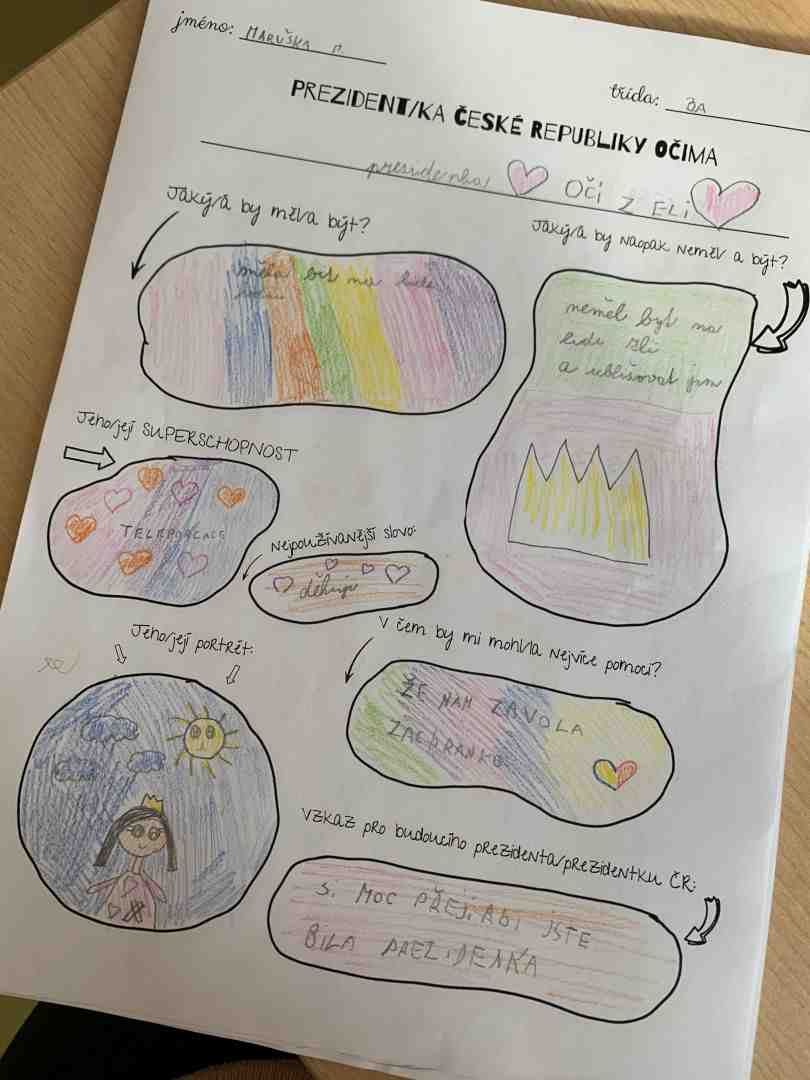 jméno: MARUŠKA M.
třída: 3A
PREZIDENT/KA ČESKÉ REPUBLIKY OČIMA
presidenka OČI Z ELI
Jaký/á by měl/a být?
měla bit na lidi
Jaký/á by naopak neměl/a být?
neměl byt na
lidi zli
a ublišovat jim
Jeho/její SUPERSCHOPNOST
TELEPORTACE
Nejpoužívanější slovo:
děkuji
Jeho/její portrét:
V čem by mi mohl/a nejvíce pomoci?
ŽE NAM ZAVOLA
ZACHRANKU
Vzkaz pro budoucího prezidenta/prezidentku ČR:
SI MOC PŘEJI ABI JSTE
BILA PREZIDENKA